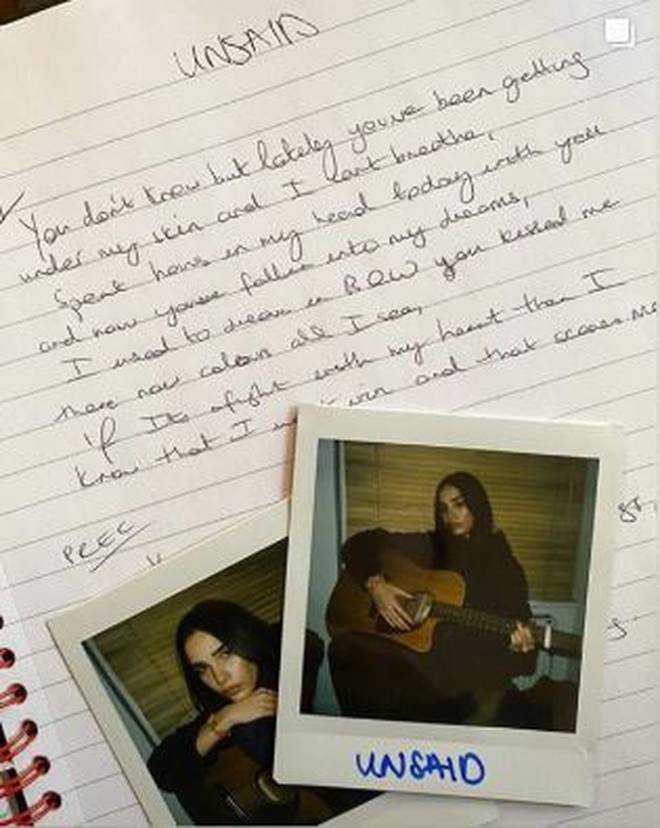 UNSAID
You don't know but lately you've been getting
under my skin and I cant breathe,
Spent hours in my head today with you
and now you've fallen into my dreams,
I used to dream in B&W you kissed me
there now colours all I see,
If Its a fight with my heart then I
know that I win and that scares me
PREC
st,
s.
UNSAID